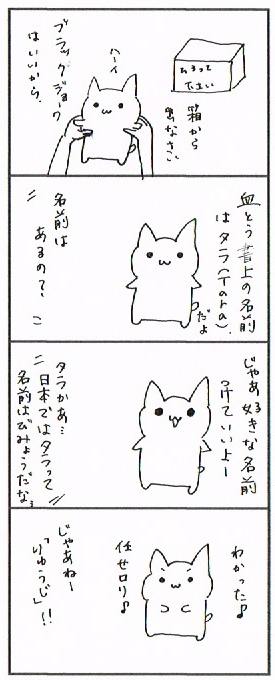 ひろって
ださい
箱から
出なさい
ハーイ
ブラックジョーク
はいいから、
血とう書上の名前
はタラ(Tara)
だよ
名前は
あるの?
じゃあ好きな名前
つけていいよー
タラかぁ…
日本ではタラって
名前はびみょうだな…
わかった♪
任せロリ♪
じゃあねー
「りゅうじ」!!